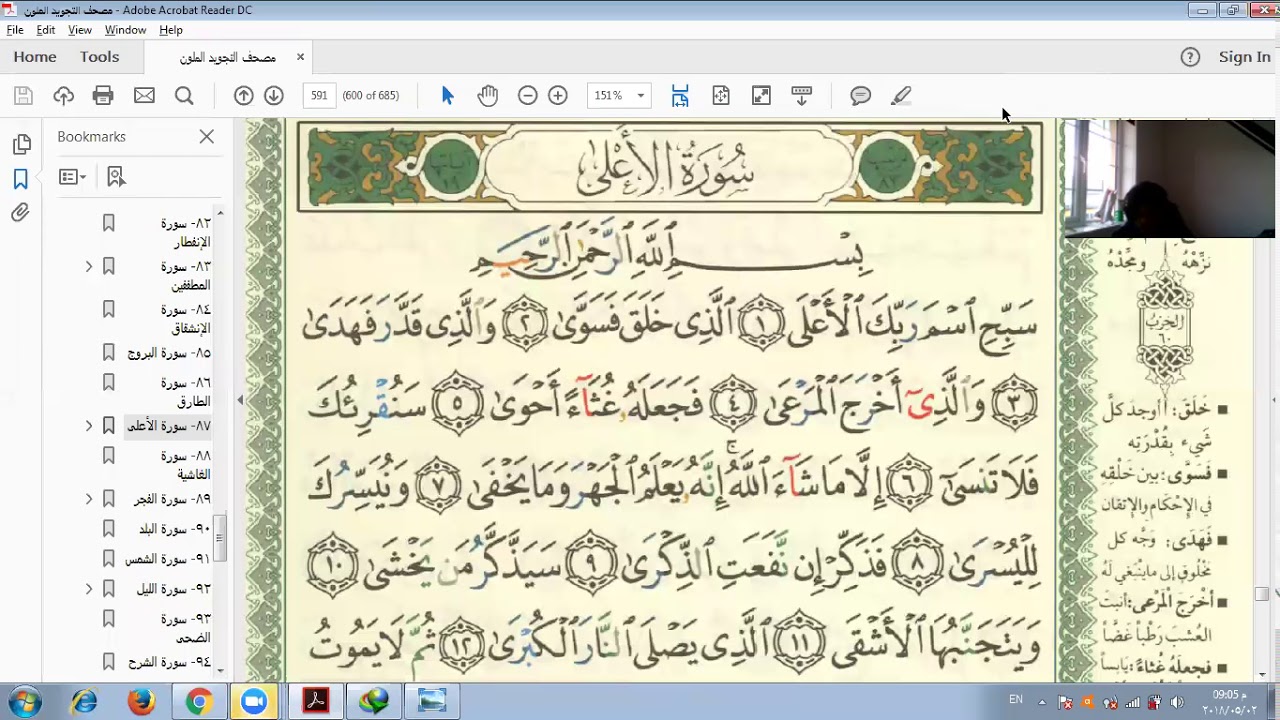 مصحف التجويد الملون - Adobe Acrobat Reader DC
File Edit View Window Help
Home Tools مصحف التجويد الملون × Sign In
591 (600 of 685) 151%
Bookmarks
٨٢- سورة
الإنفطار
٨٣- سورة
المطففين
٨٤- سورة
الإنشقاق
٨٥- سورة البروج
٨٦- سورة
الطارق
٨٧- سورة الأعلى
٨٨- سورة
الغاشية
٨٩- سورة الفجر
٩٠- سورة البلد
٩١- سورة الشمس
٩٢- سورة الليل
٩٣- سورة
الضحى
٩٤- سورة الشرح
سُورَةُ الأَعْلَىٰ
بِسْمِ ٱللَّهِ ٱلرَّحْمَٰنِ ٱلرَّحِيمِ
سَبِّحِ ٱسْمَ رَبِّكَ ٱلْأَعْلَى ١ ٱلَّذِى خَلَقَ فَسَوَّىٰ ٢ وَٱلَّذِى قَدَّرَ فَهَدَىٰ
٣ وَٱلَّذِىٓ أَخْرَجَ ٱلْمَرْعَىٰ ٤ فَجَعَلَهُۥ غُثَآءً أَحْوَىٰ ٥ سَنُقْرِئُكَ
فَلَا تَنسَىٰٓ ٦ إِلَّا مَا شَآءَ ٱللَّهُ ۚ إِنَّهُۥ يَعْلَمُ ٱلْجَهْرَ وَمَا يَخْفَىٰ ٧ وَنُيَسِّرُكَ
لِلْيُسْرَىٰ ٨ فَذَكِّرْ إِن نَّفَعَتِ ٱلذِّكْرَىٰ ٩ سَيَذَّكَّرُ مَن يَخْشَىٰ ١٠
وَيَتَجَنَّبُهَا ٱلْأَشْقَى ١١ ٱلَّذِى يَصْلَى ٱلنَّارَ ٱلْكُبْرَىٰ ١٢ ثُمَّ لَا يَمُوتُ
نَزِّهْهُ ومَجِّدْهُ
الحِزبُ
٦٠
خَلَقَ: أوجد كلَّ
شَيْء بِقُدْرَتِه
فَسَوَّى: بين خَلْقِه
في الإحْكام والإتقان
فَهَدَى: وَجَّه كل
مخلوق إلى ما ينبغي لَهُ
أخْرَجَ المَرْعى: أنبت
العُشبَ رَطْباً غَضّاً
فجعلهُ غُثاءً: يابساً
EN
09:05 م
٢٠١٨/٠٥/٠٢